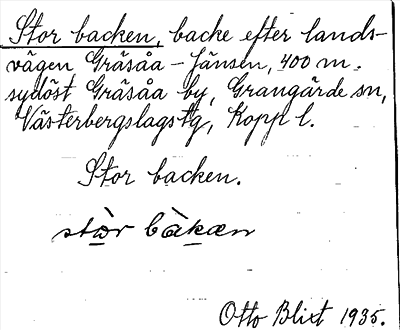 Stor backen, backe efter lands-
vägen Gräsåa - Jänsen, 400 m.
sydöst Gräsåa by, Grangärde sn,
Västerbergslags tg, Kopp l.
Stor backen.
stòr bàkæn
Otto Blixt 1935.